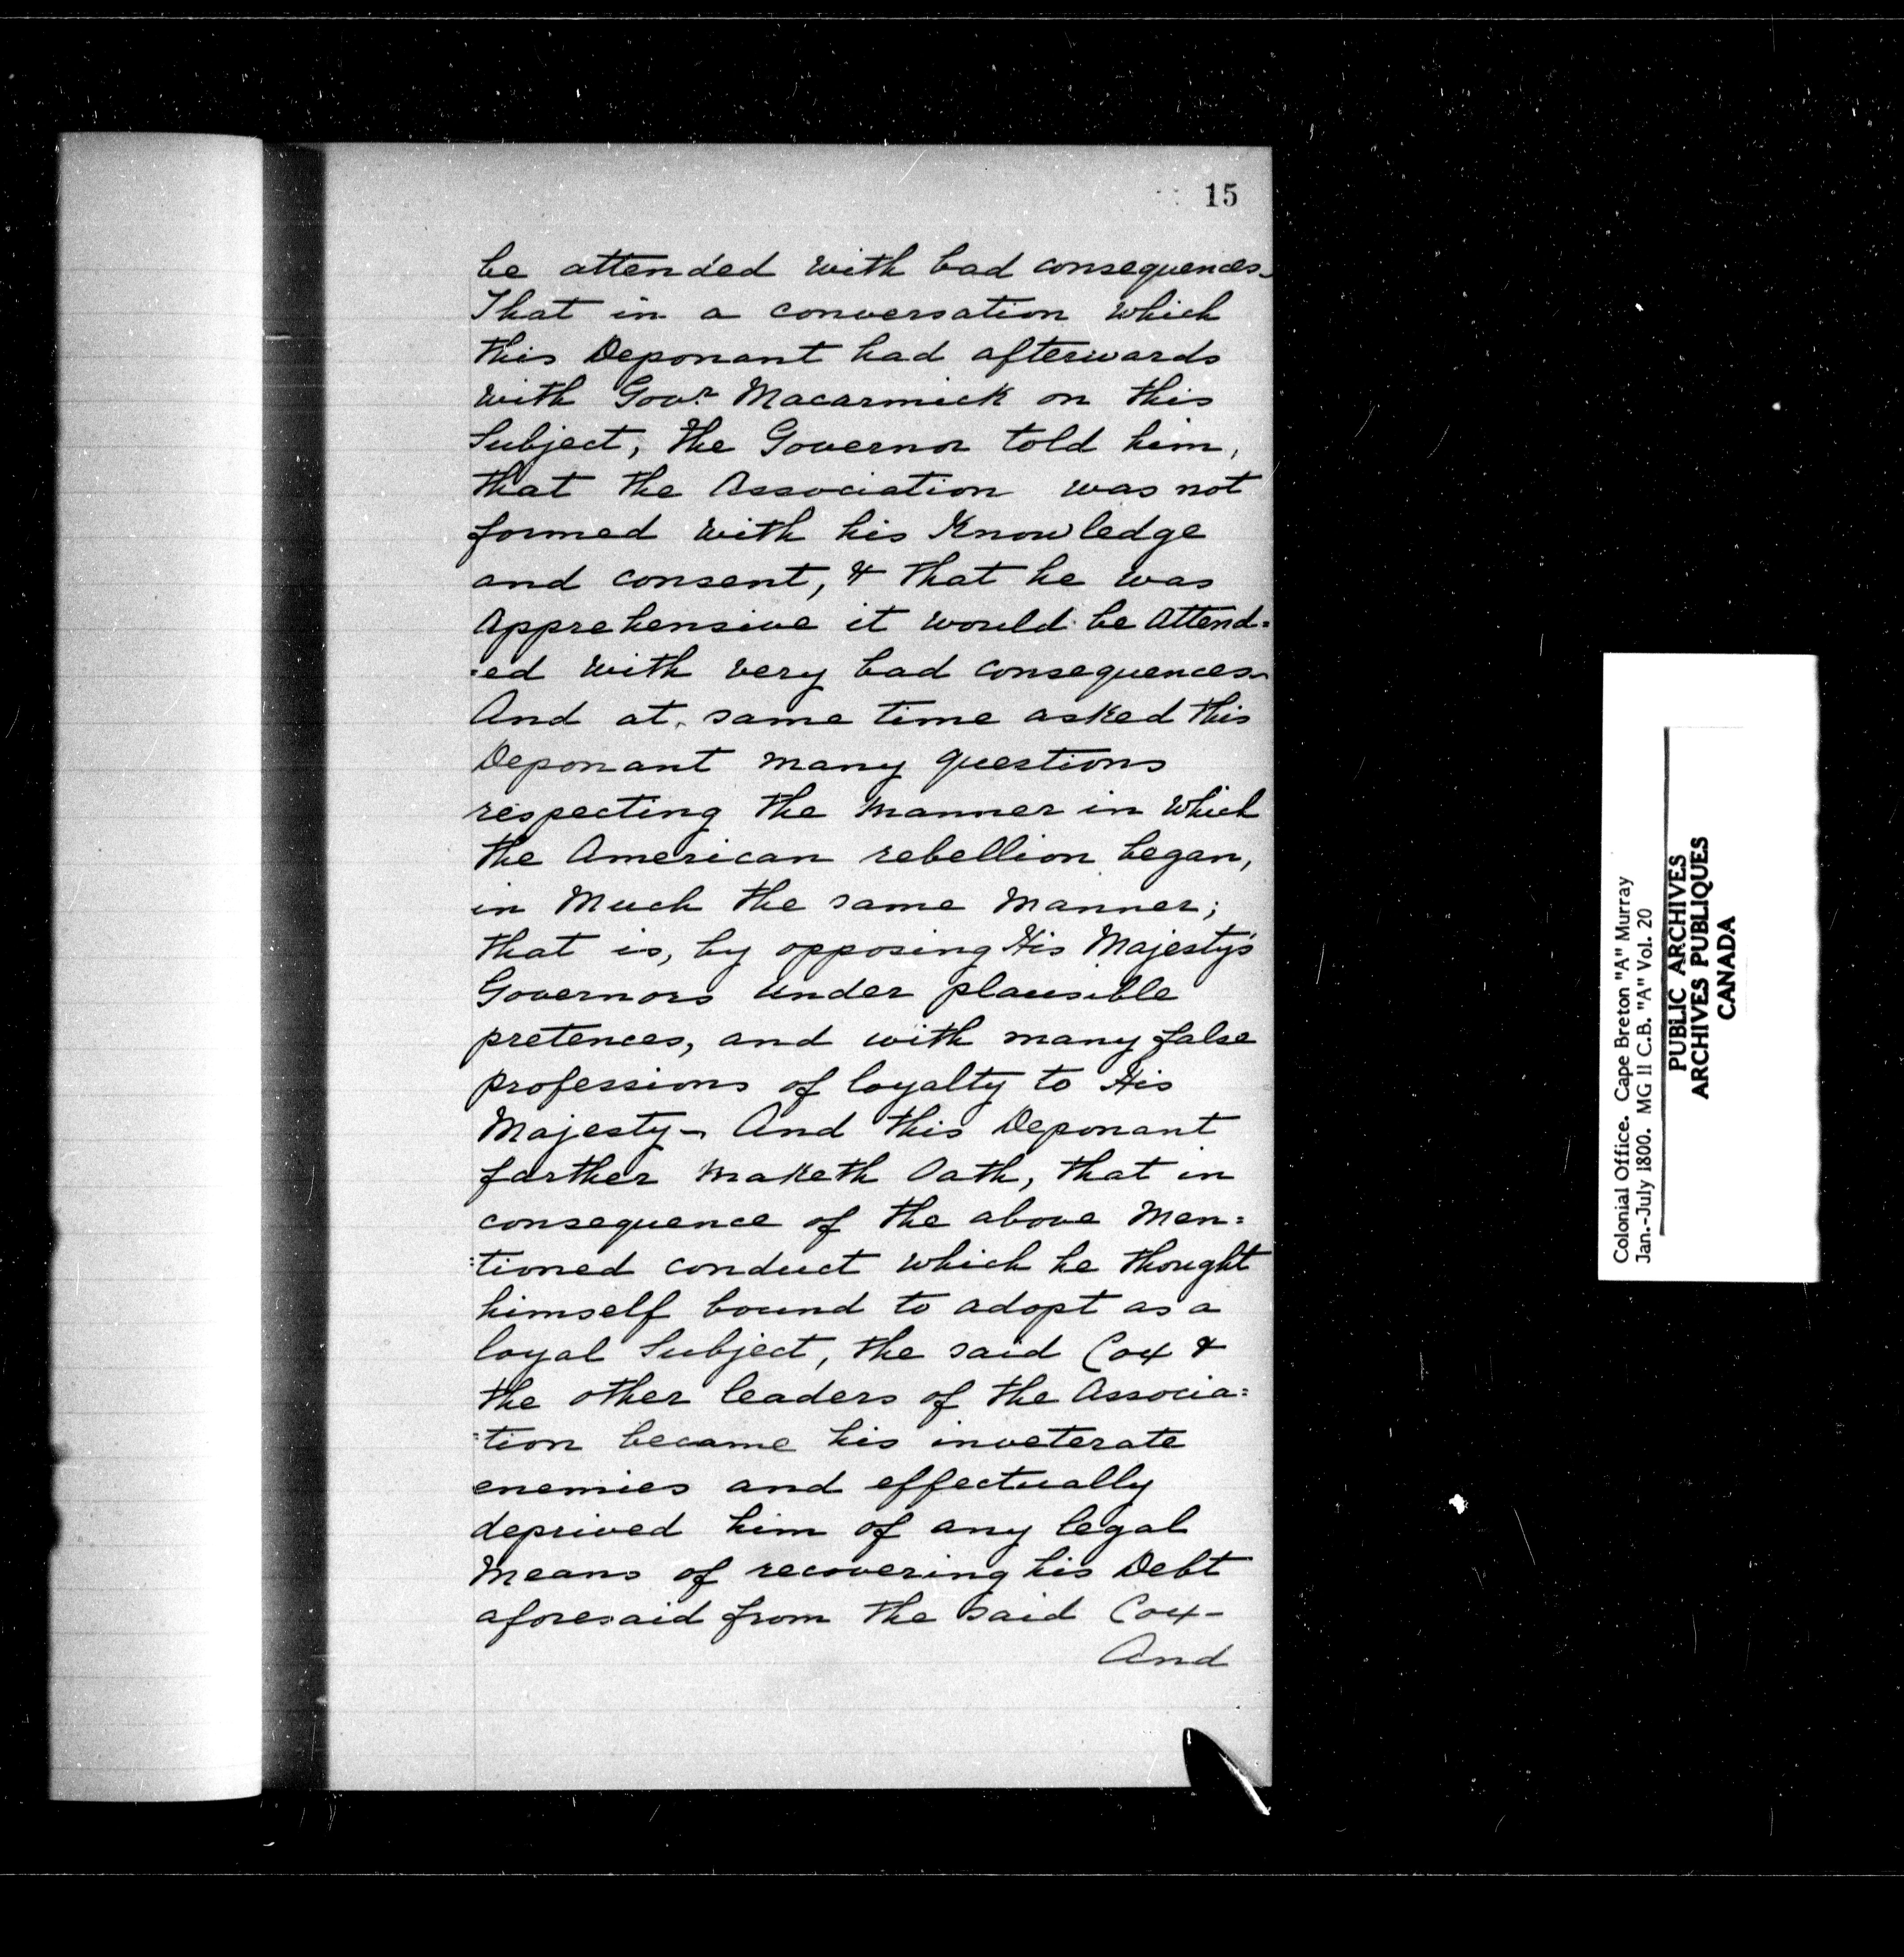 15
be attended with bad consequences.
That in a conversation which
this Deponant had afterwards
with Govr. Macarmick on this
Subject, the Governor told him,
that the Association was not
formed with his Knowledge
and consent, & that he was
Apprehensive it would be Attend=
=ed with very bad consequences.
And at same time asked this
Deponant many questions
respecting the Manner in Which
the American rebellion began,
in Much the same Manner;
that is, by opposing His Majesty's
Governors under plausible
pretences, and with many false
professions of loyalty to His
Majesty - And this Deponant
farther Maketh Oath, that in
consequence of the above Men=
=tioned conduct which he thought
himself bound to adopt as a
loyal Subject, the said Cox &
the other leaders of the Associa=
=tion became his inveterate
enemies and effectually
deprived him of any legal
Means of recovering his Debt
aforesaid from the said Cox -
And
Colonial Office. Cape Breton "A" Murray
Jan.-July 1800. MG 11 C.B. "A" Vol. 20
PUBLIC ARCHIVES
ARCHIVES PUBLIQUES
CANADA